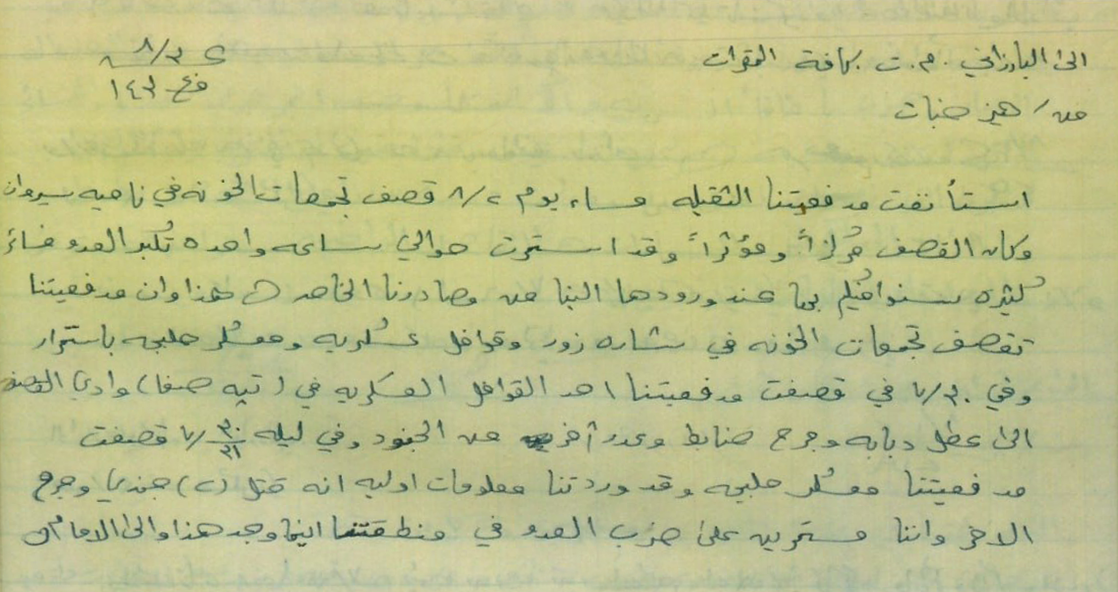 الى البارزاني .م.ت بكافة المقرات
ع ٨/٣
فخ ١٤٣
من / هيز خبات
استأنفت مدفعيتنا الثقيله مساء يوم ٨/٢ قصف تجمعات الخونه في ناحيه سيروان
وكان القصف مركزاً ومؤثراً وقد استمرت حوالي ساعه واحده تكبد العدو خسائر
كثيره سنوافيكم بها عند ورودها الينا من مصادرنا الخاصه هذا وان مدفعيتنا
تقصف تجمعات الخونه في شاره زور وقوافل عسكريه ومعسكر حلبجه باستمرار
وفي ٧/٣٠ في قصفت مدفعيتنا احد القوافل العسكريه في (تپه صفا) وادى القصف
الى عطل دبابه وجرح ضابط وعدد آخر من الجنود وفي ليله ٣٠/٣١ /٧ قصفت
مدفعيتنا معسكر حلبجه وقد وردتنا معلومات اوليه انه قتل (٢) جندي وجرح
الاخر واننا مستمرين على ضرب العدو في منطقتنا اينما وجد هذا والى الامام